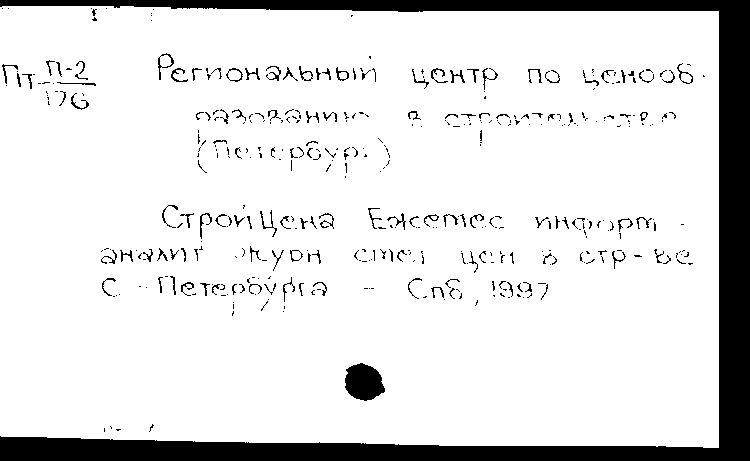 Пт П-2/176
Региональный центр по ценооб-
разованию в строительстве
(Петербург)
СтройЦена Ежемес информ -
аналит журн смет цен в стр-ве
С - Петербурга - Спб, 1997